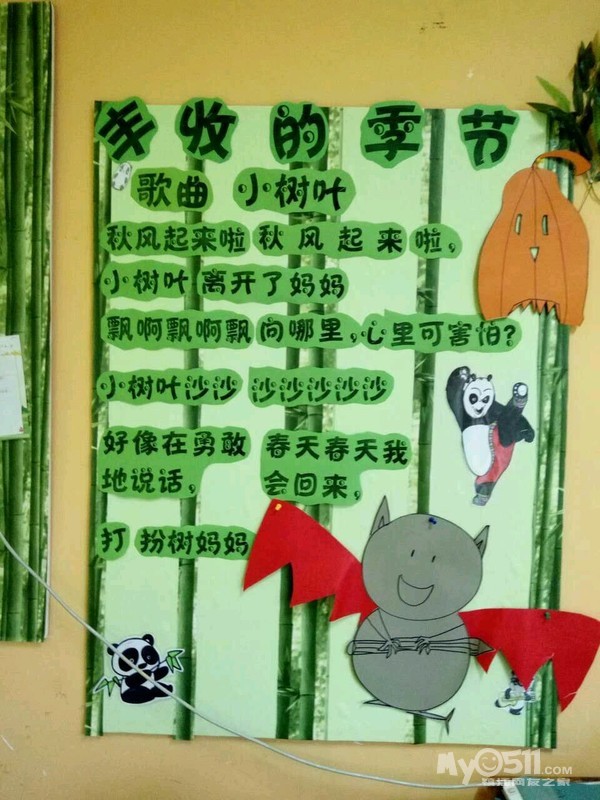 丰收的季节
歌曲 小树叶
秋风起来啦 秋风起来啦，
小树叶 离开了妈妈
飘啊飘啊飘 向哪里，心里可害怕？
小树叶沙沙 沙沙沙沙沙
好像在勇敢地说话，
春天春天我会回来，
打扮树妈妈
My0511.COM